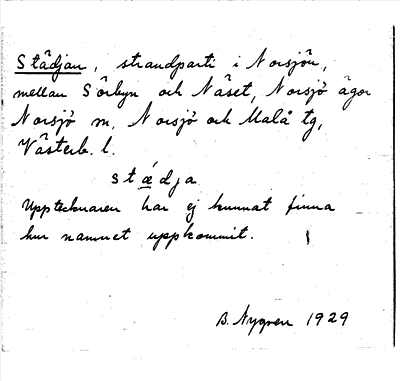 Städjan, strandparti i Norsjön,
mellan Sörbyn och Näset, Norsjö ägor
Norsjö sn, Norsjö och Malå tg,
Västerb. l.
stædja
Upptecknaren har ej kunnat finna
hur namnet uppkommit.
B. Nygren 1929